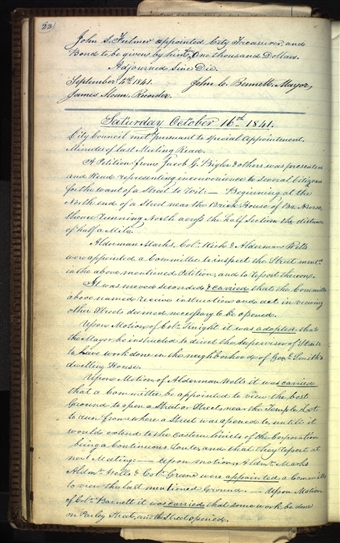 22
John S. Fullmer appointed City Treasurer, and
Bond to be given by him, One thousand Dollars.
Adjourned Sine Die.
September 4th 1841. John C. Bennett, Mayor,
James Sloan, Recorder.
Saturday October 16th 1841.
City Council met pursuant to special appointment.
Minutes of last Meeting Read.
A Petition from Jacob G. Bigler & others was presented
and Read representing inconvenience to several Citizens
for the want of a Street to Wit:— Beginning at the
North end of a Street near the Brick House of
thence running North across the half Section the distance
of half a Mile.
Alderman Marks, Col. & Alderman Wells
were appointed a Committee to inspect the Street mentd.
in the above mentioned Petition, and to report thereon.
It was moved seconded & carried that the Committee
above named receive instructions and act in viewing
other Streets deemed necessary to be opened.
Upon Motion of Col. Knight it was adopted that
the Mayor be instructed to direct the Supervisor of Streets
to have work done in the neighborhood of Smith's
dwelling House.
Upon Motion of Alderman Wells it was carried
that a Committee be appointed to view the best
Ground to open a Street or Streets, near the Temple Lot
to run from where a Street was opened to until it
would extend to the Eastern limits of the Corporation
being a continuous Route, and that they report at
next Meeting.— upon motion Aldn. Marks
Aldn. Wells & Col. Greene were appointed a Committee
to view the last mentioned Ground.— Upon Motion
of Col. Barnett it was carried that some work be done
on Parley Street, and the Street opened.